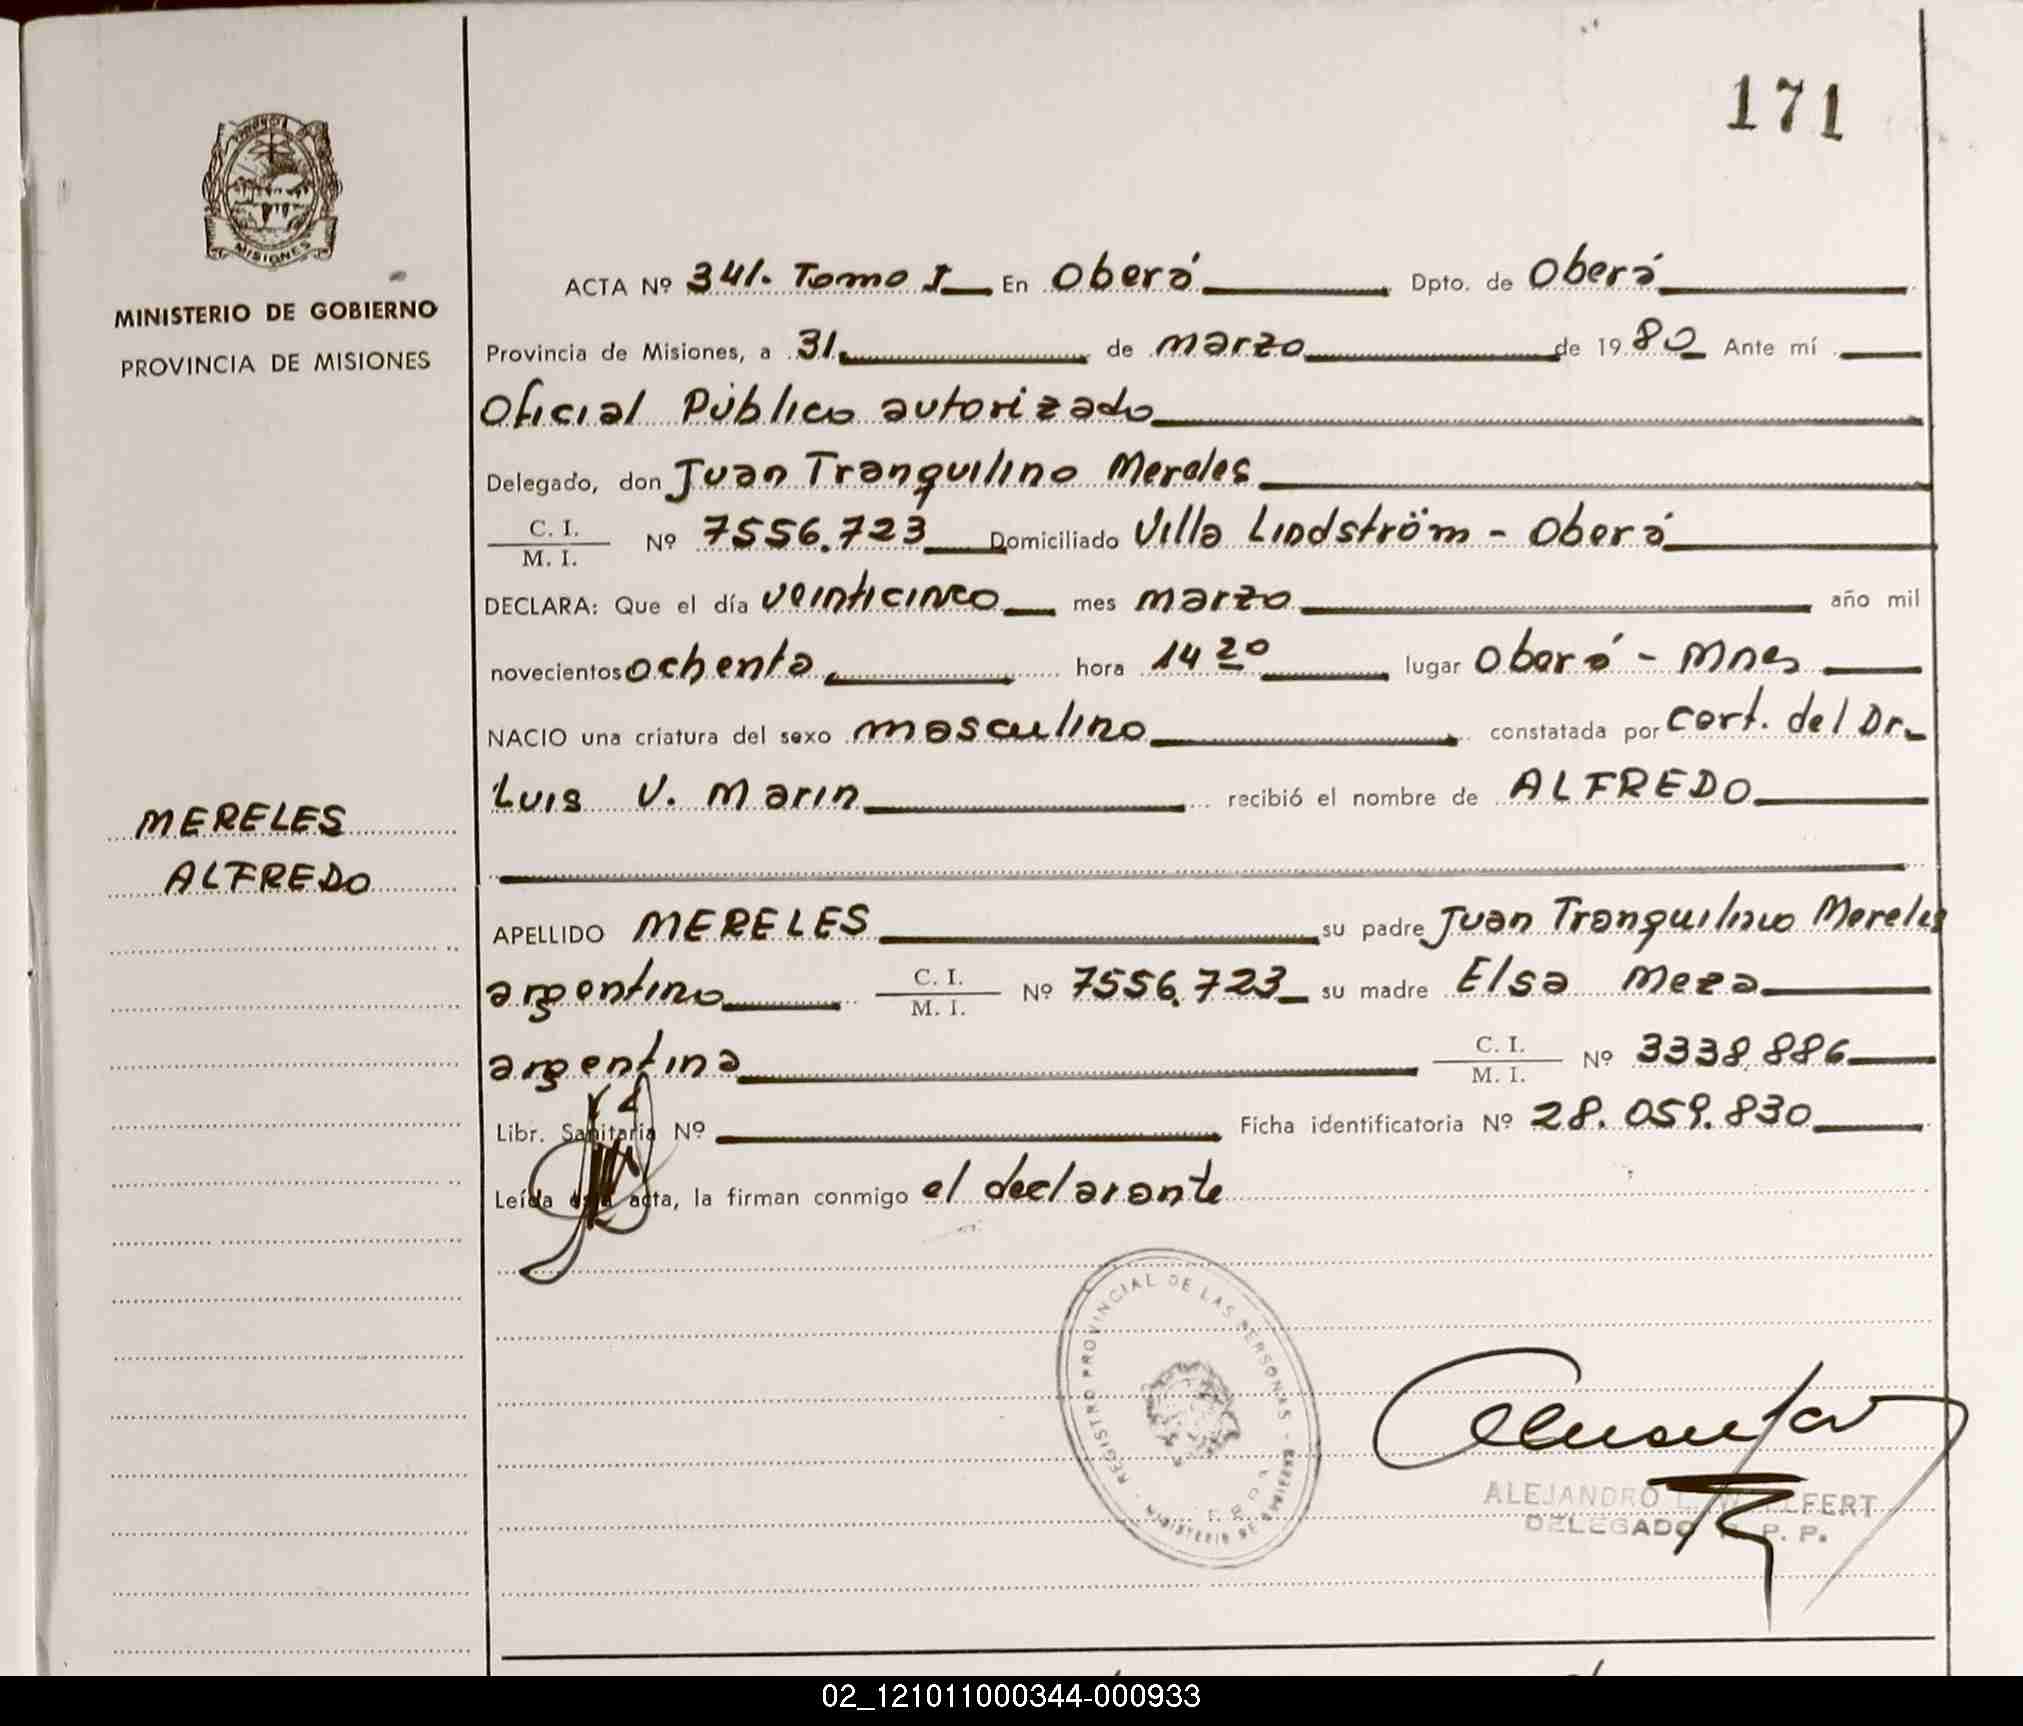 171
MISIONES
MINISTERIO DE GOBIERNO
PROVINCIA DE MISIONES
MERELES
ALFREDO
ACTA Nº 341. Tomo I En Oberá Dpto. de Oberá
Provincia de Misiones, a 31 de marzo de 1980 Ante mí
Oficial Público autorizado
Delegado, don Juan Tranquilino Mereles
C. I. / M. I. Nº 7556.723 Domiciliado Villa Lindström - Oberá
DECLARA: Que el día veinticinco mes marzo año mil
novecientos ochenta hora 14 20 lugar Oberá - Mnes
NACIO una criatura del sexo masculino constatada por Cert. del Dr.
Luis V. Marin recibió el nombre de ALFREDO
APELLIDO MERELES su padre Juan Tranquilino Mereles
argentino C. I. / M. I. Nº 7556.723 su madre Elsa Meza
argentina C. I. / M. I. Nº 3338.886
Libr. Sanitaria Nº Ficha identificatoria Nº 28.059.830
Leída esta acta, la firman conmigo el declarante
REGISTRO PROVINCIAL DE LAS PERSONAS - MINISTERIO DE GOBIERNO
ALEJANDRO
DELEGADO R. P. P.
02_121011000344-000933